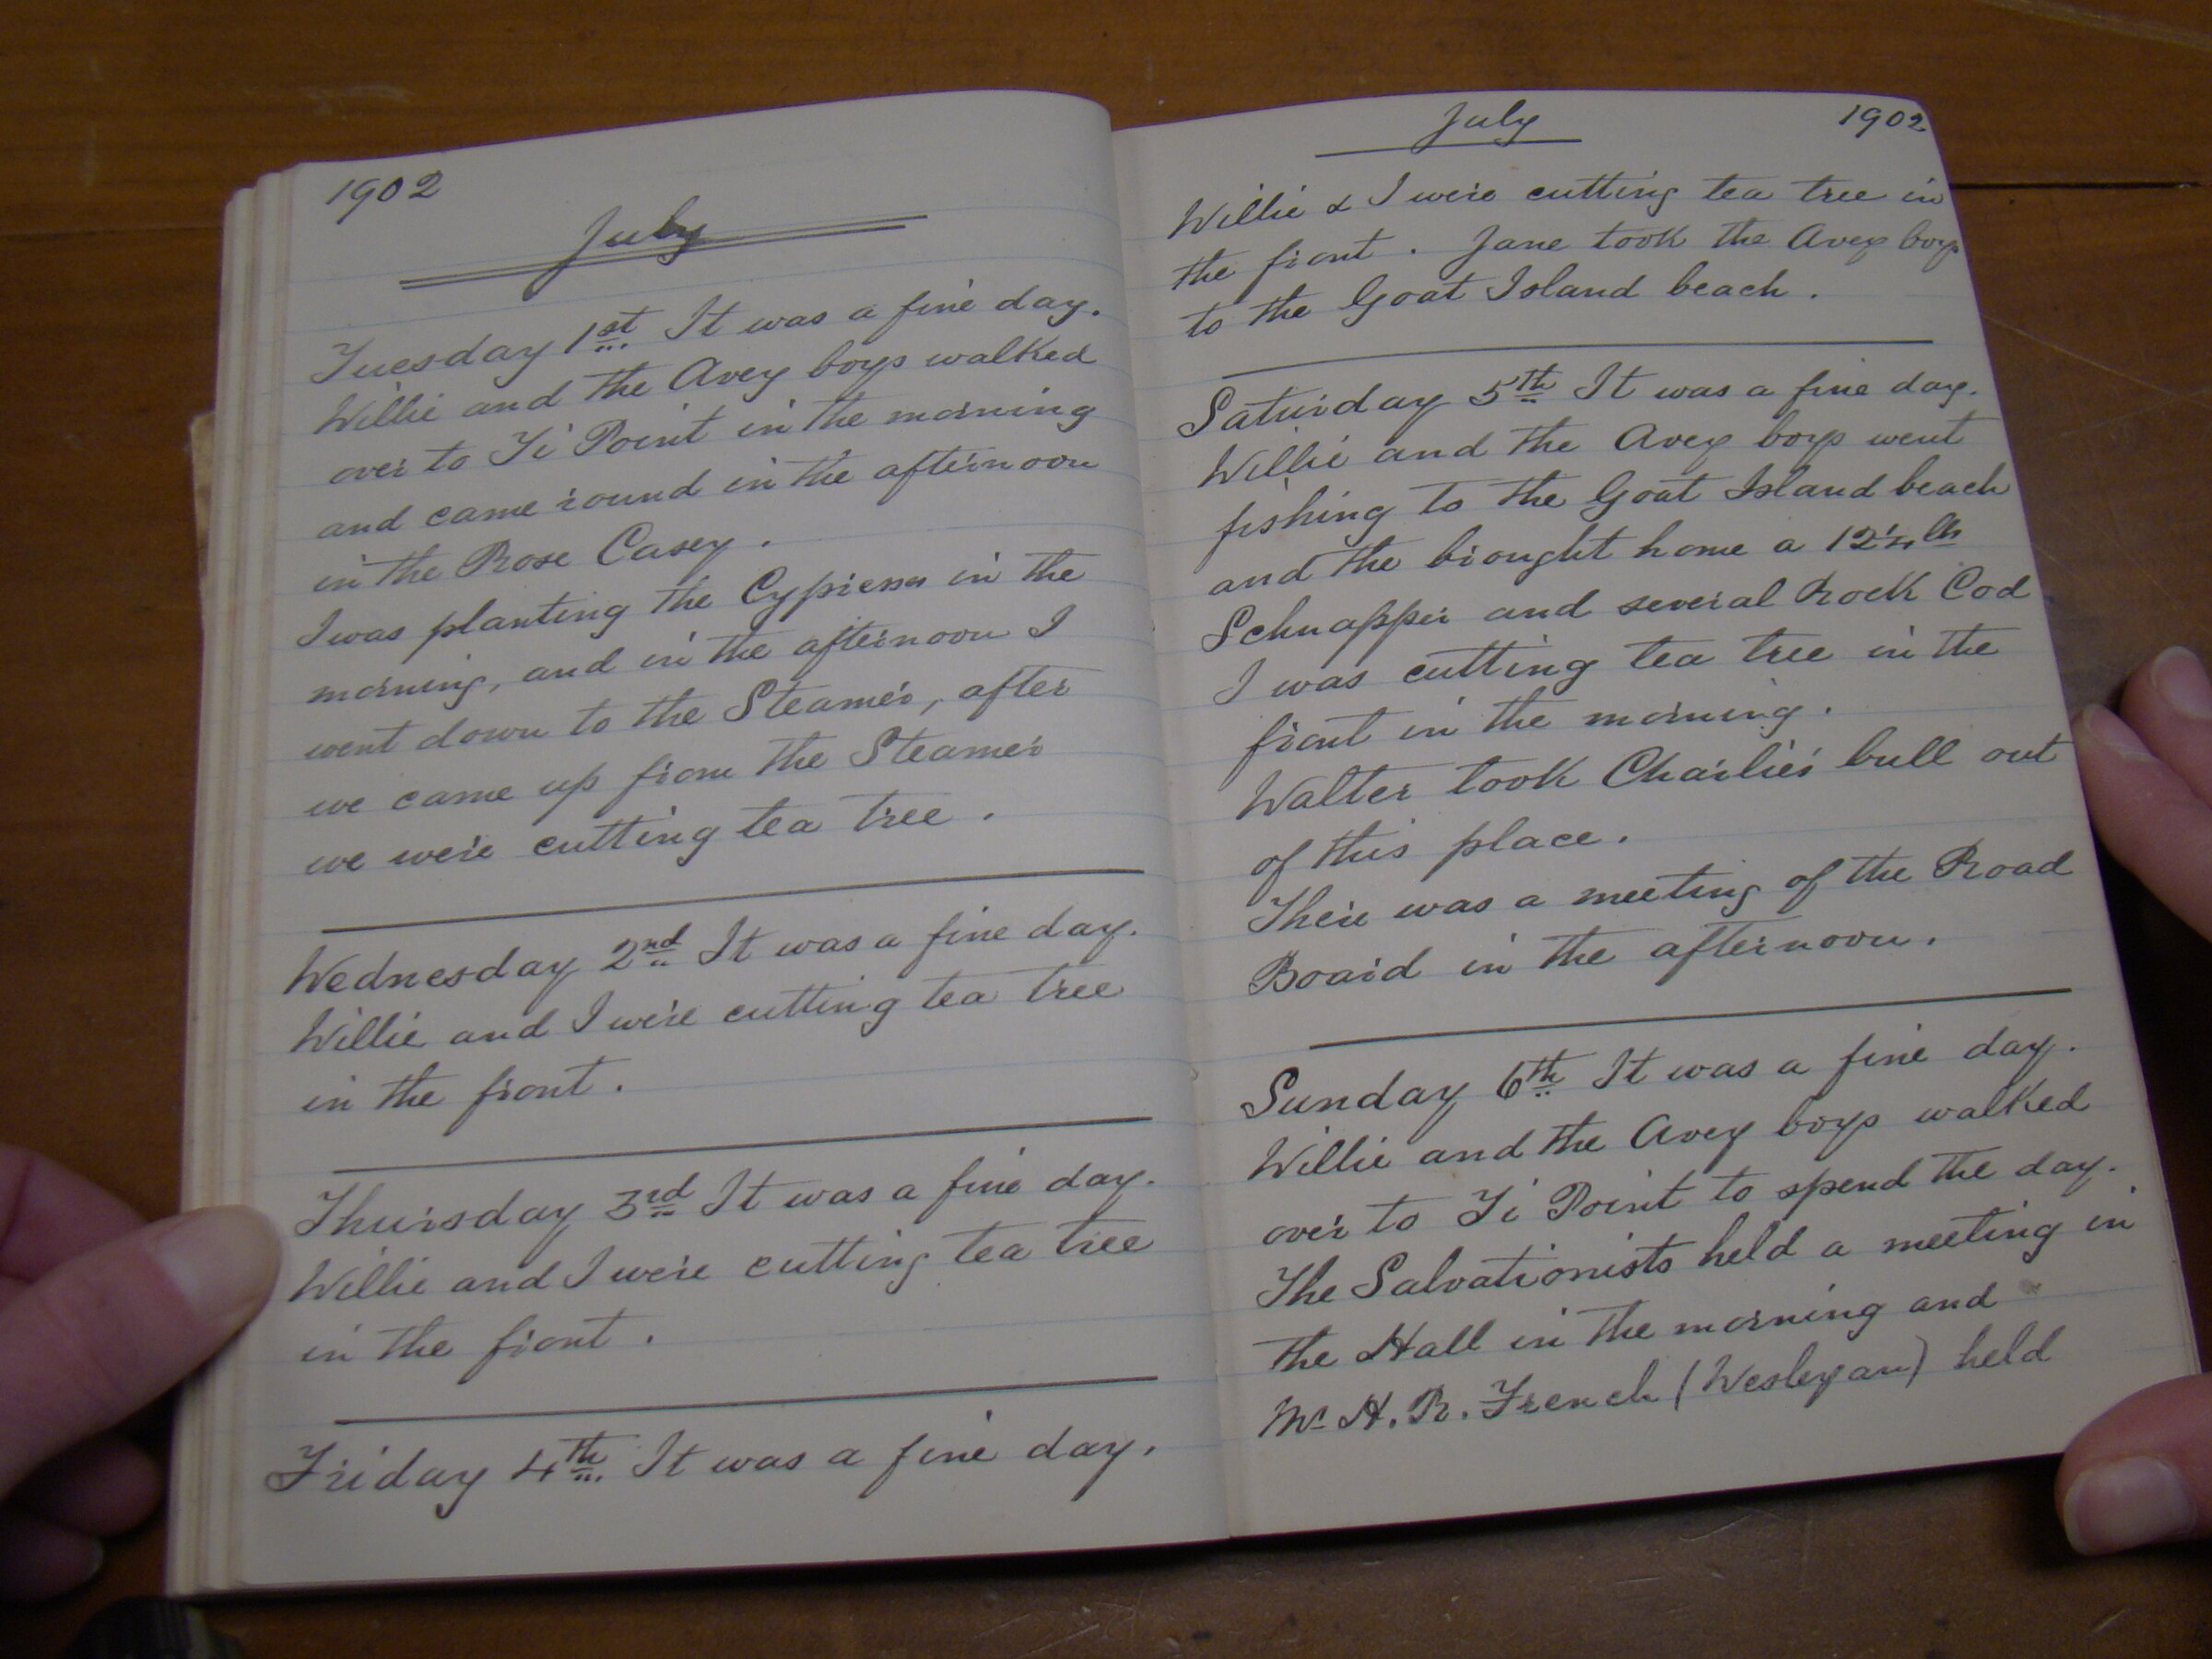 1902
July
Tuesday 1st It was a fine day.
Willie and the Avey boys walked
over to Ti Point in the morning
and came round in the afternoon
in the Rose Casey.
I was planting the Cypress in the
morning, and in the afternoon I
went down to the Steamer, after
we came up from the Steamer
we were cutting tea tree.
Wednesday 2nd It was a fine day.
Willie and I were cutting tea tree
in the front.
Thursday 3rd It was a fine day.
Willie and I were cutting tea tree
in the front.
Friday 4th It was a fine day.
July 1902
Willie & I were cutting tea tree in
the front. Jane took the Avey boys
to the Goat Island beach.
Saturday 5th It was a fine day.
Willie and the Avey boys went
fishing to the Goat Island beach
and the brought home a lb
Schnapper and several Rock Cod
I was cutting tea tree in the
front in the morning.
Walter took Charlie's bull out
of this place.
There was a meeting of the Road
Board in the afternoon.
Sunday 6th It was a fine day.
Willie and the Avey boys walked
over to Ti Point to spend the day.
The Salvationists held a meeting in
the Hall in the morning and
Mr H. R. French (Wesleyan) held